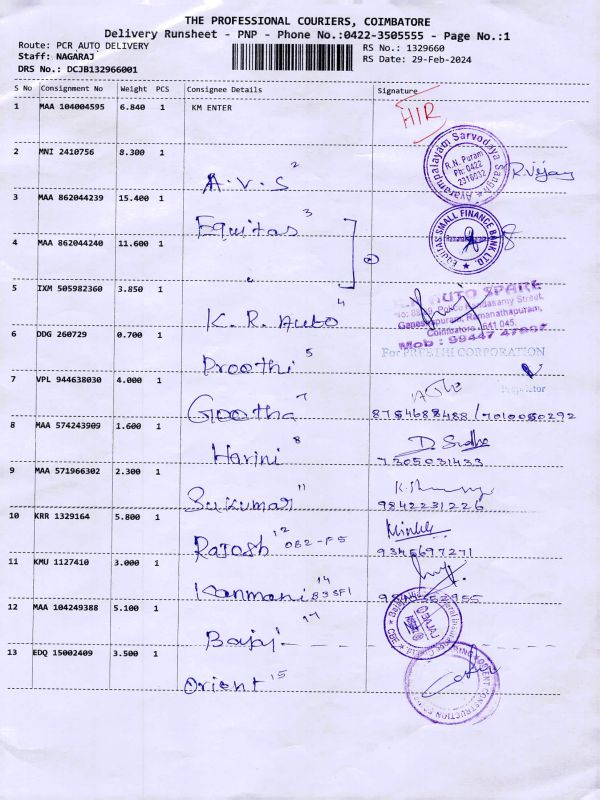 THE PROFESSIONAL COURIERS, COIMBATORE
Delivery Runsheet - PNP - Phone No.:0422-3505555 - Page No.:1
Route: PCR AUTO DELIVERY
Staff: NAGARAJ
DRS No.: DCJB132966001
RS No.: 1329660
RS Date: 29-Feb-2024
S No Consignment No Weight PCS Consignee Details Signature
1 MAA 104004595 6.840 1 KM ENTER
HIR
2 MNI 2410756 8.300 1
A.V.S 2
Ayarampalayam Sarvodaya Sangh
R.N. Puram
Ph: 0422
2316032
R.Vijay
3 MAA 862044239 15.400 1
Equitas 3
EQUITAS SMALL FINANCE BANK LTD.
Ramanathapuram
4 MAA 862044240 11.600 1
"
5 IXM 505982360 3.850 1
K.R. Auto 4
AUTO SPARE
Street,
Ramanathapuram,
Coimbatore - 641 045.
Mob : 99447
6 DDG 260729 0.700 1
Preethi 5
For PREETHI CORPORATION
Proprietor
7 VPL 944638030 4.000 1
Geetha 7
8754688488 / 7010050292
8 MAA 574243909 1.600 1
Harini 8
D. Sudha
7305031433
9 MAA 571966302 2.300 1
Sukumar 11
9842231226
10 KRR 1329164 5.800 1
Rajesh 12 OB2-F5
9345697271
11 KMU 1127410 3.000 1
Kanmani 14 B3SF1
12 MAA 104249388 5.100 1
Bajaj 17
BAJAJ
CBE
13 EDQ 15002409 3.500 1
Orient 15
CONSTRUCTION